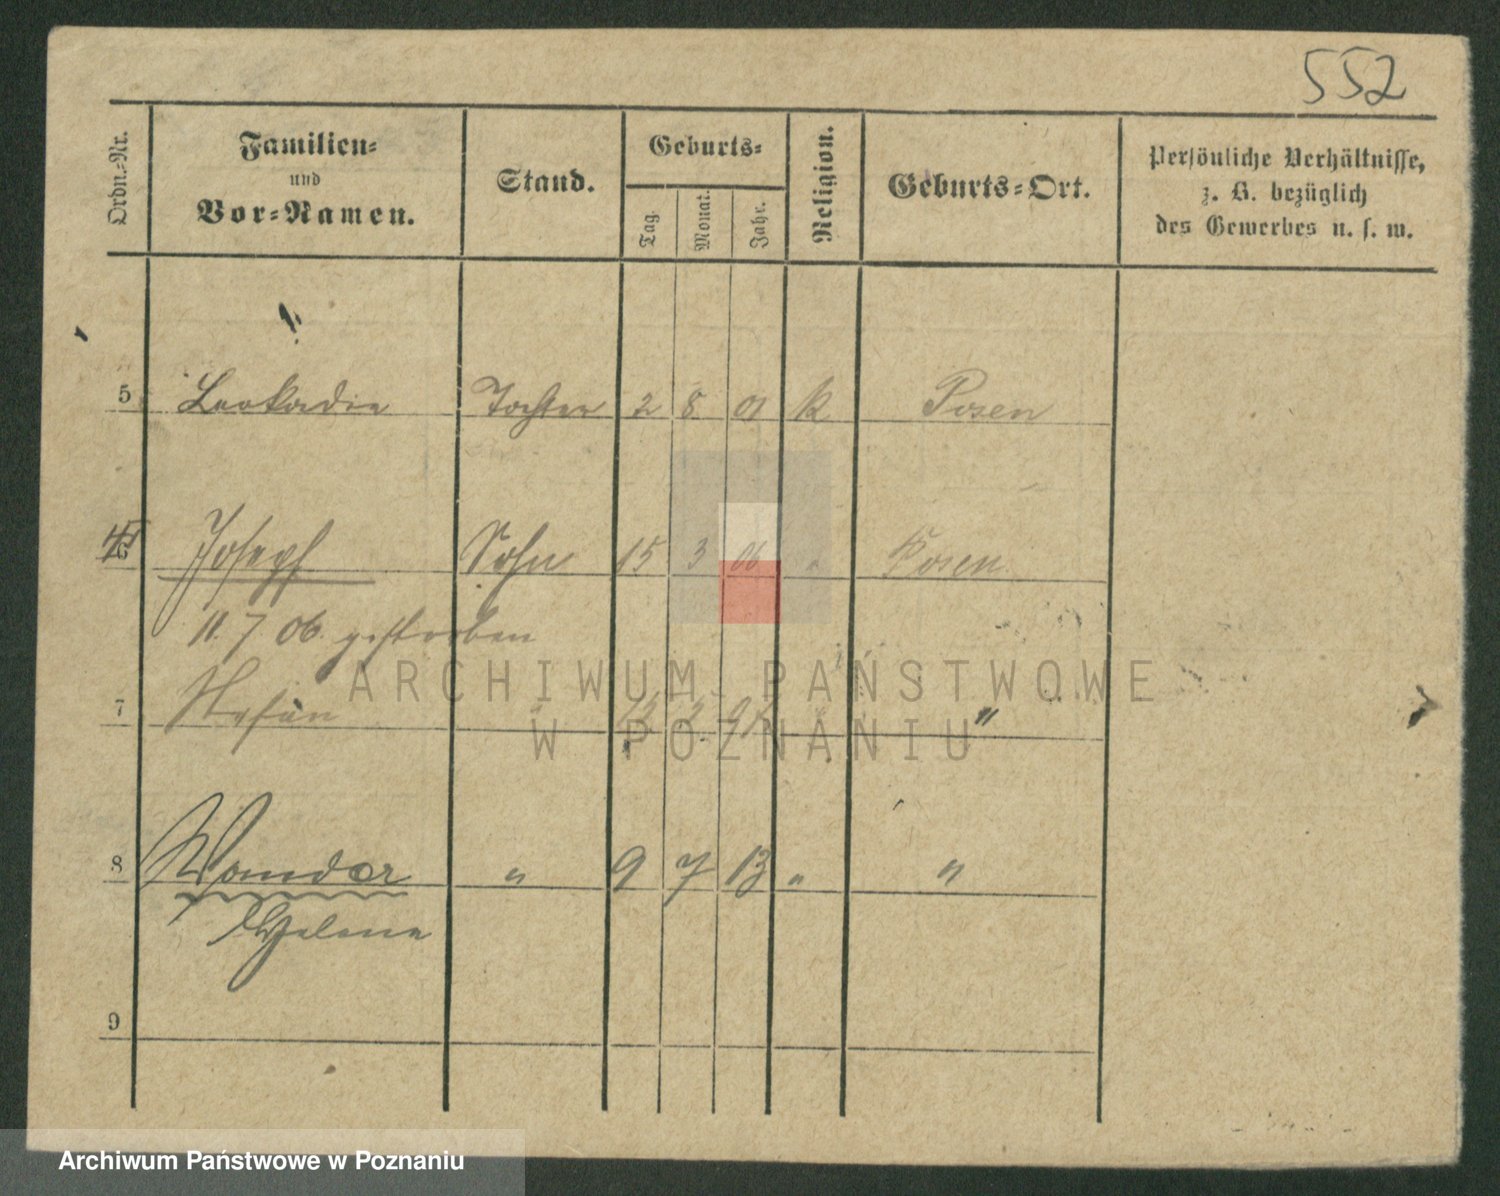 552
Ordn.-Nr.
Familien-
und
Vor-Namen.
Stand.
Geburts-
Tag.
Monat.
Jahr.
Religion.
Geburts-Ort.
Persönliche Verhältnisse,
z. B. bezüglich
des Gewerbes u. s. w.
5 Leokadie Tochter 2 8 01 k Posen
6 Joseph Sohn 15 3 06 " Posen
11. 7. 06. gestorben
7 " "
8 " 9 7 13 " "
Helene
9
ARCHIWUM PAŃSTWOWE
W POZNANIU
Archiwum Państwowe w Poznaniu